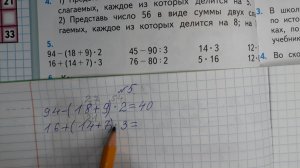 33
слагаемых, каждое из которых делится на 5,
2) Представь число 56 в виде суммы двух сла-
гаемых, каждое из которых делится на 8; на
5.
94 − (18 + 9) · 2 45 − 90 : 3 14 · 3 12
16 + (14 + 7) · 3 76 − 80 : 2 5 · 16 12
3. В школ
4. Во ско
№5
94-(18+9)·2=40
16+(14+7)·3=